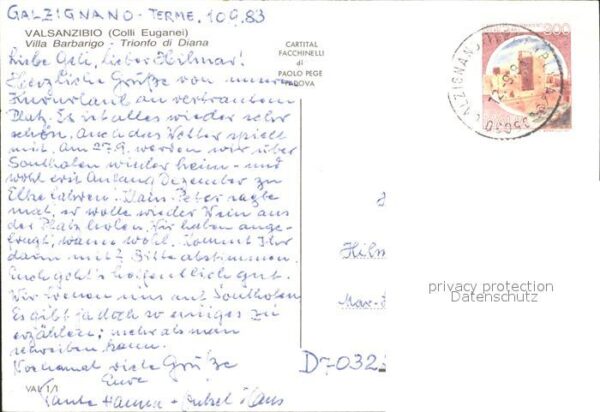 GALZIGNANO - TERME, 10.9.83
VALSANZIBIO (Colli Euganei)
Villa Barbarigo - Trionfo di Diana
CARTITAL
FACCHINELLI
di
PAOLO PEGE
PADOVA
300
35030 GALZIGNANO
Liebe Geli, lieber Hilmar!
Herzliche Grüße von unserem
Kururlaub an vertrautem
Platz. Es ist alles wieder sehr
schön. Auch das Wetter spielt
mit. Am 27.9. werden wir über
Sonthofen wieder heim - und
wohl erst Anfang Dezember zu
Elke fahren! Hans-Peter sagte
mal, er wolle wieder Wein aus
der Pfalz holen. Wir haben ange-
fragt, wann wohl. Kommt Ihr
dann mit? Bitte abstimmen.
Euch geht's hoffentlich gut.
Wir freuen uns auf Sonthofen
Es gibt ja doch so einiges zu
erzählen; mehr als man
schreiben kann.
Nochmal viele Grüße
Eure
Tante Hanna + Onkel Hans
VAL 1/1
Hilm
Max-
D-032
privacy protection
Datenschutz